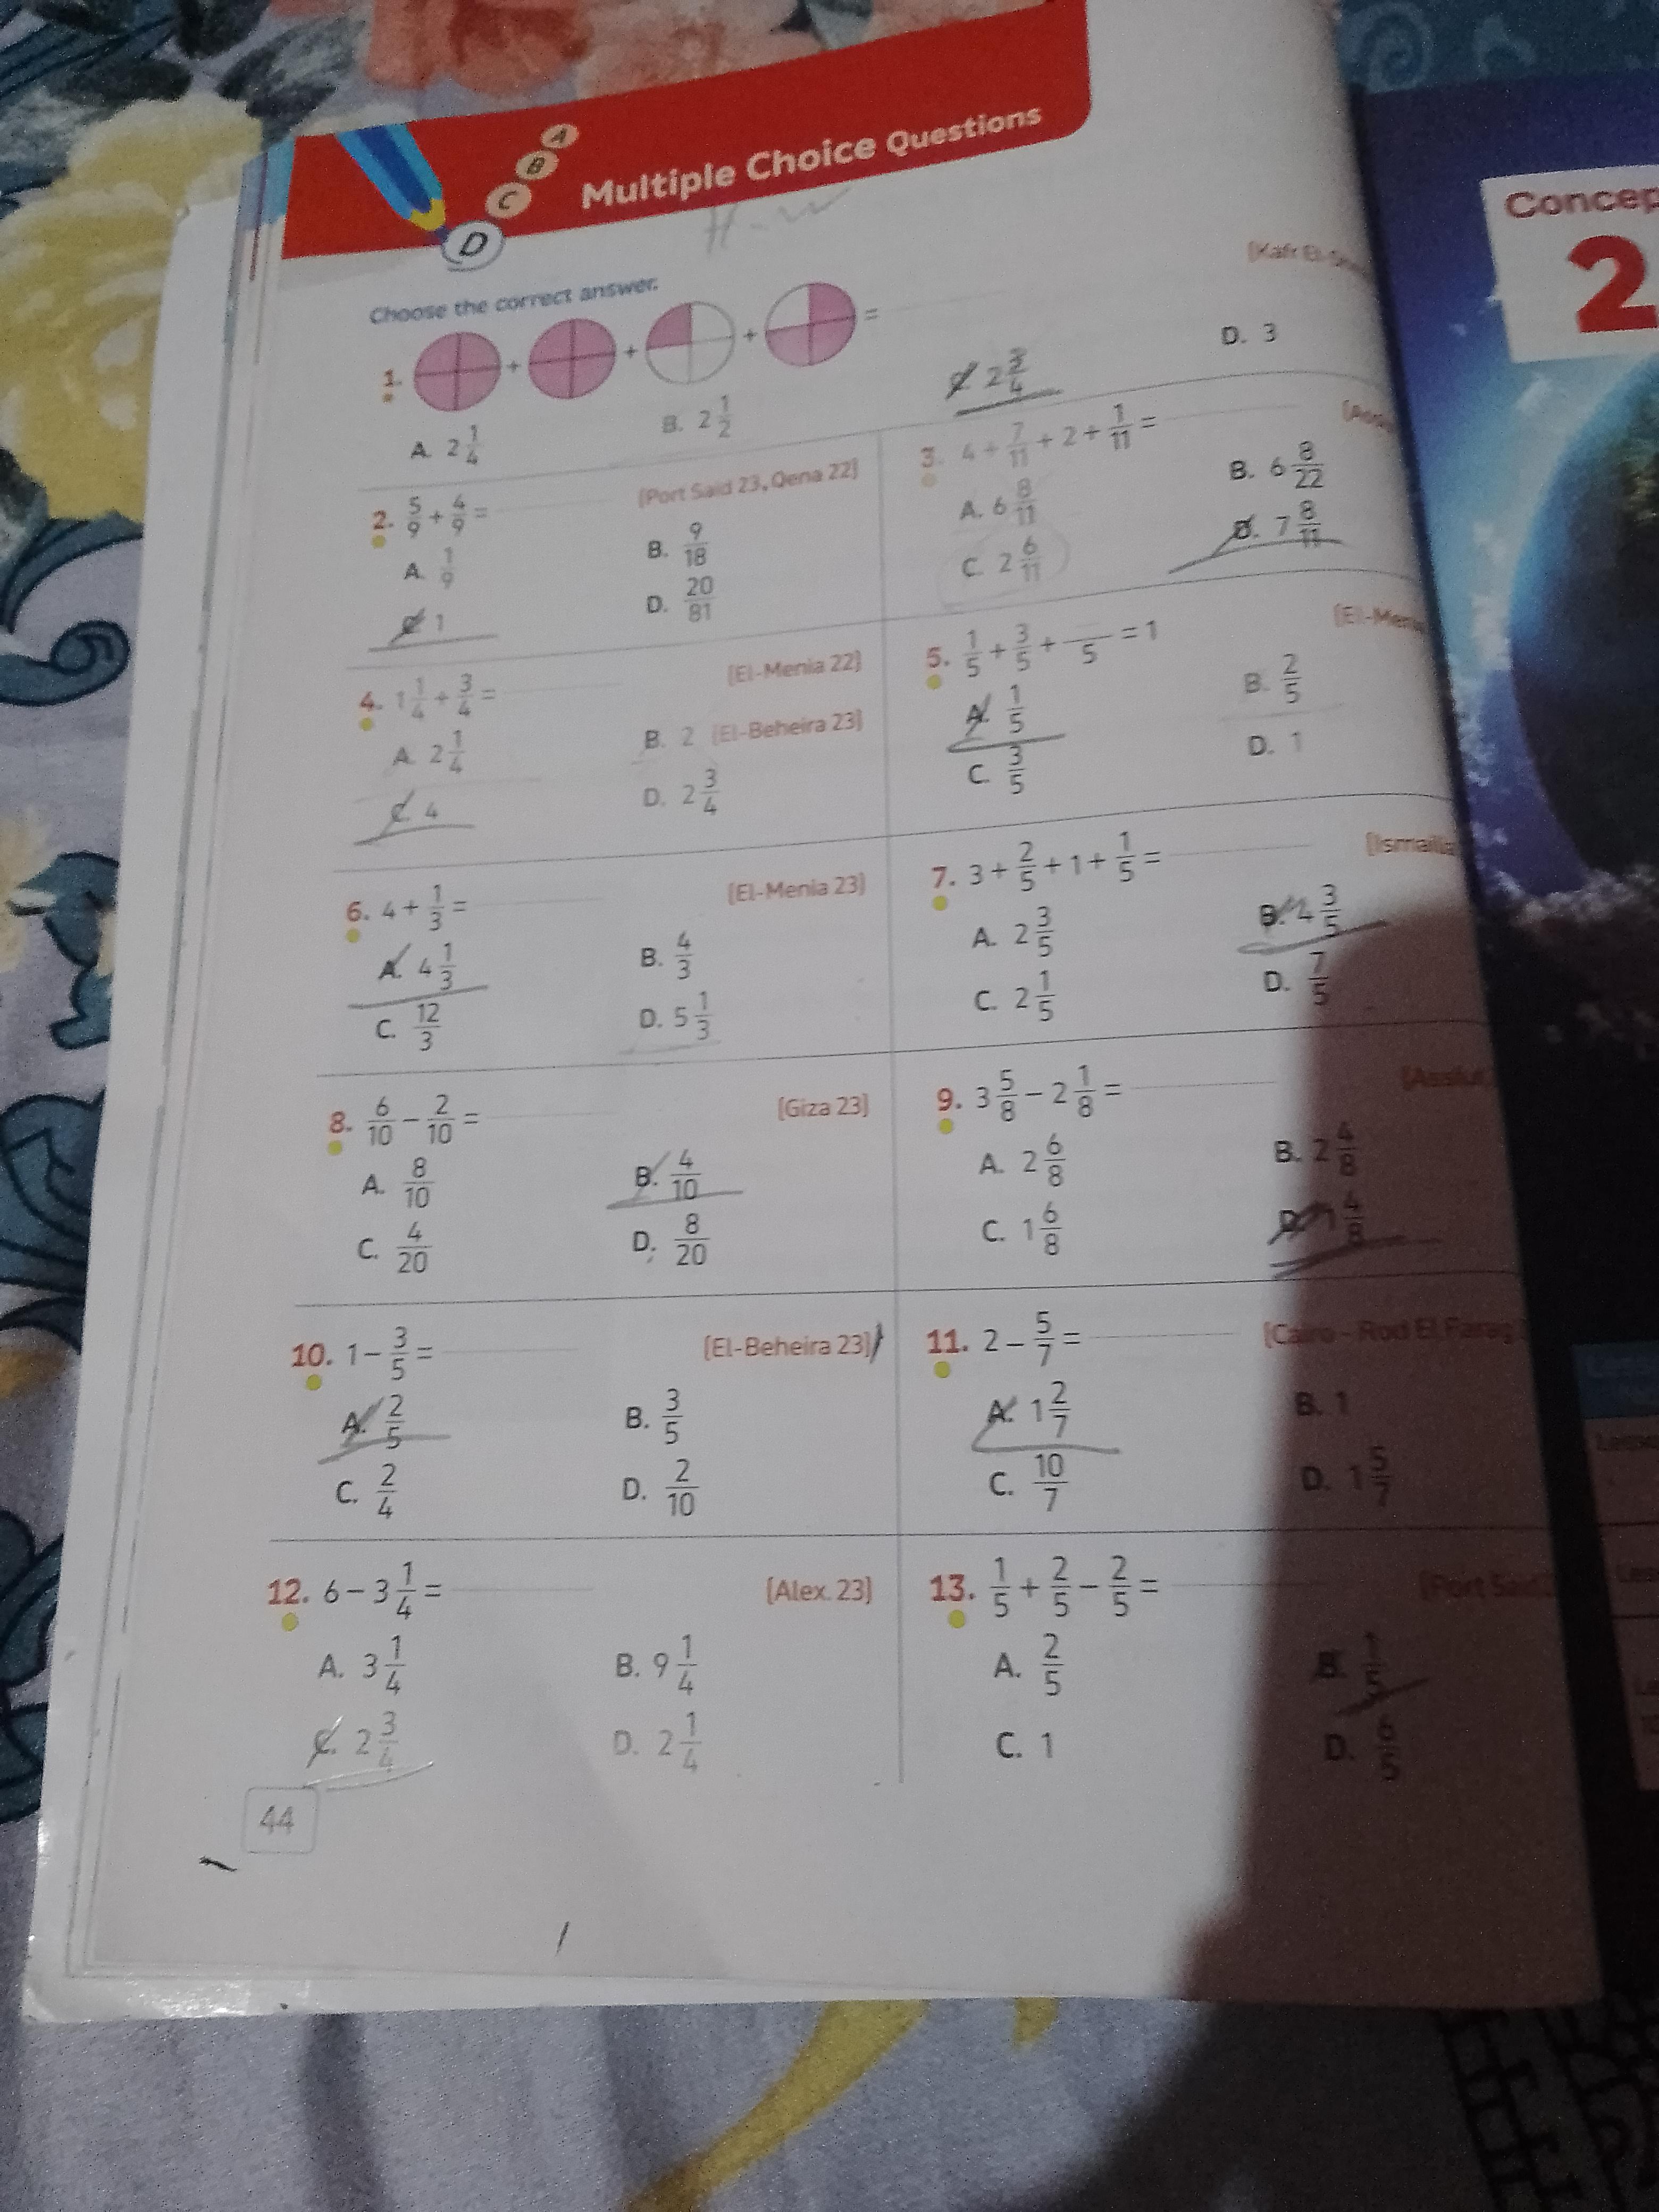 A
B
C
D
Multiple Choice Questions
H.w
Concep
2
Choose the correct answer.
[Kafr El-
1. + + + =
A. 2 1/4 B. 2 1/2 C. 2 3/4 D. 3
2. 5/9 + 4/9 = [Port Said 23, Qena 22]
A. 1/9 B. 9/18
C. 1 D. 20/81
3. 4 + 7/11 + 2 + 1/11 =
A. 6 8/11 B. 6 8/22
C. 2 6/11 D. 7 8/11
4. 1 1/4 + 3/4 = [El-Menia 22]
[El-Beheira 23]
A. 2 1/4 B. 2
C. 4 D. 2 3/4
5. 1/5 + 3/5 + /5 = 1 [El-Men
A. 1/5 B. 2/5
C. 3/5 D. 1
6. 4 + 1/3 = [El-Menia 23]
A. 4 1/3 B. 4/3
C. 12/3 D. 5 1/3
7. 3 + 2/5 + 1 + 1/5 = [Ismailia
A. 2 3/5 B. 4 3/5
C. 2 1/5 D. 7/5
8. 6/10 − 2/10 = [Giza 23]
A. 8/10 B. 4/10
C. 4/20 D. 8/20
9. 3 5/8 − 2 1/8 = [Assiut
A. 2 6/8 B. 2 4/8
C. 1 6/8 D. 1 4/8
10. 1 − 3/5 = [El-Beheira 23]
A. 2/5 B. 3/5
C. 2/4 D. 2/10
11. 2 − 5/7 = [Cairo - Rod El Farag
A. 1 2/7 B. 1
C. 10/7 D. 1 5/7
12. 6 − 3 1/4 = [Alex. 23]
A. 3 1/4 B. 9 1/4
C. 2 3/4 D. 2 1/4
13. 1/5 + 2/5 − 2/5 = [Port Said
A. 2/5 B. 1/5
C. 1 D. 6/5
44